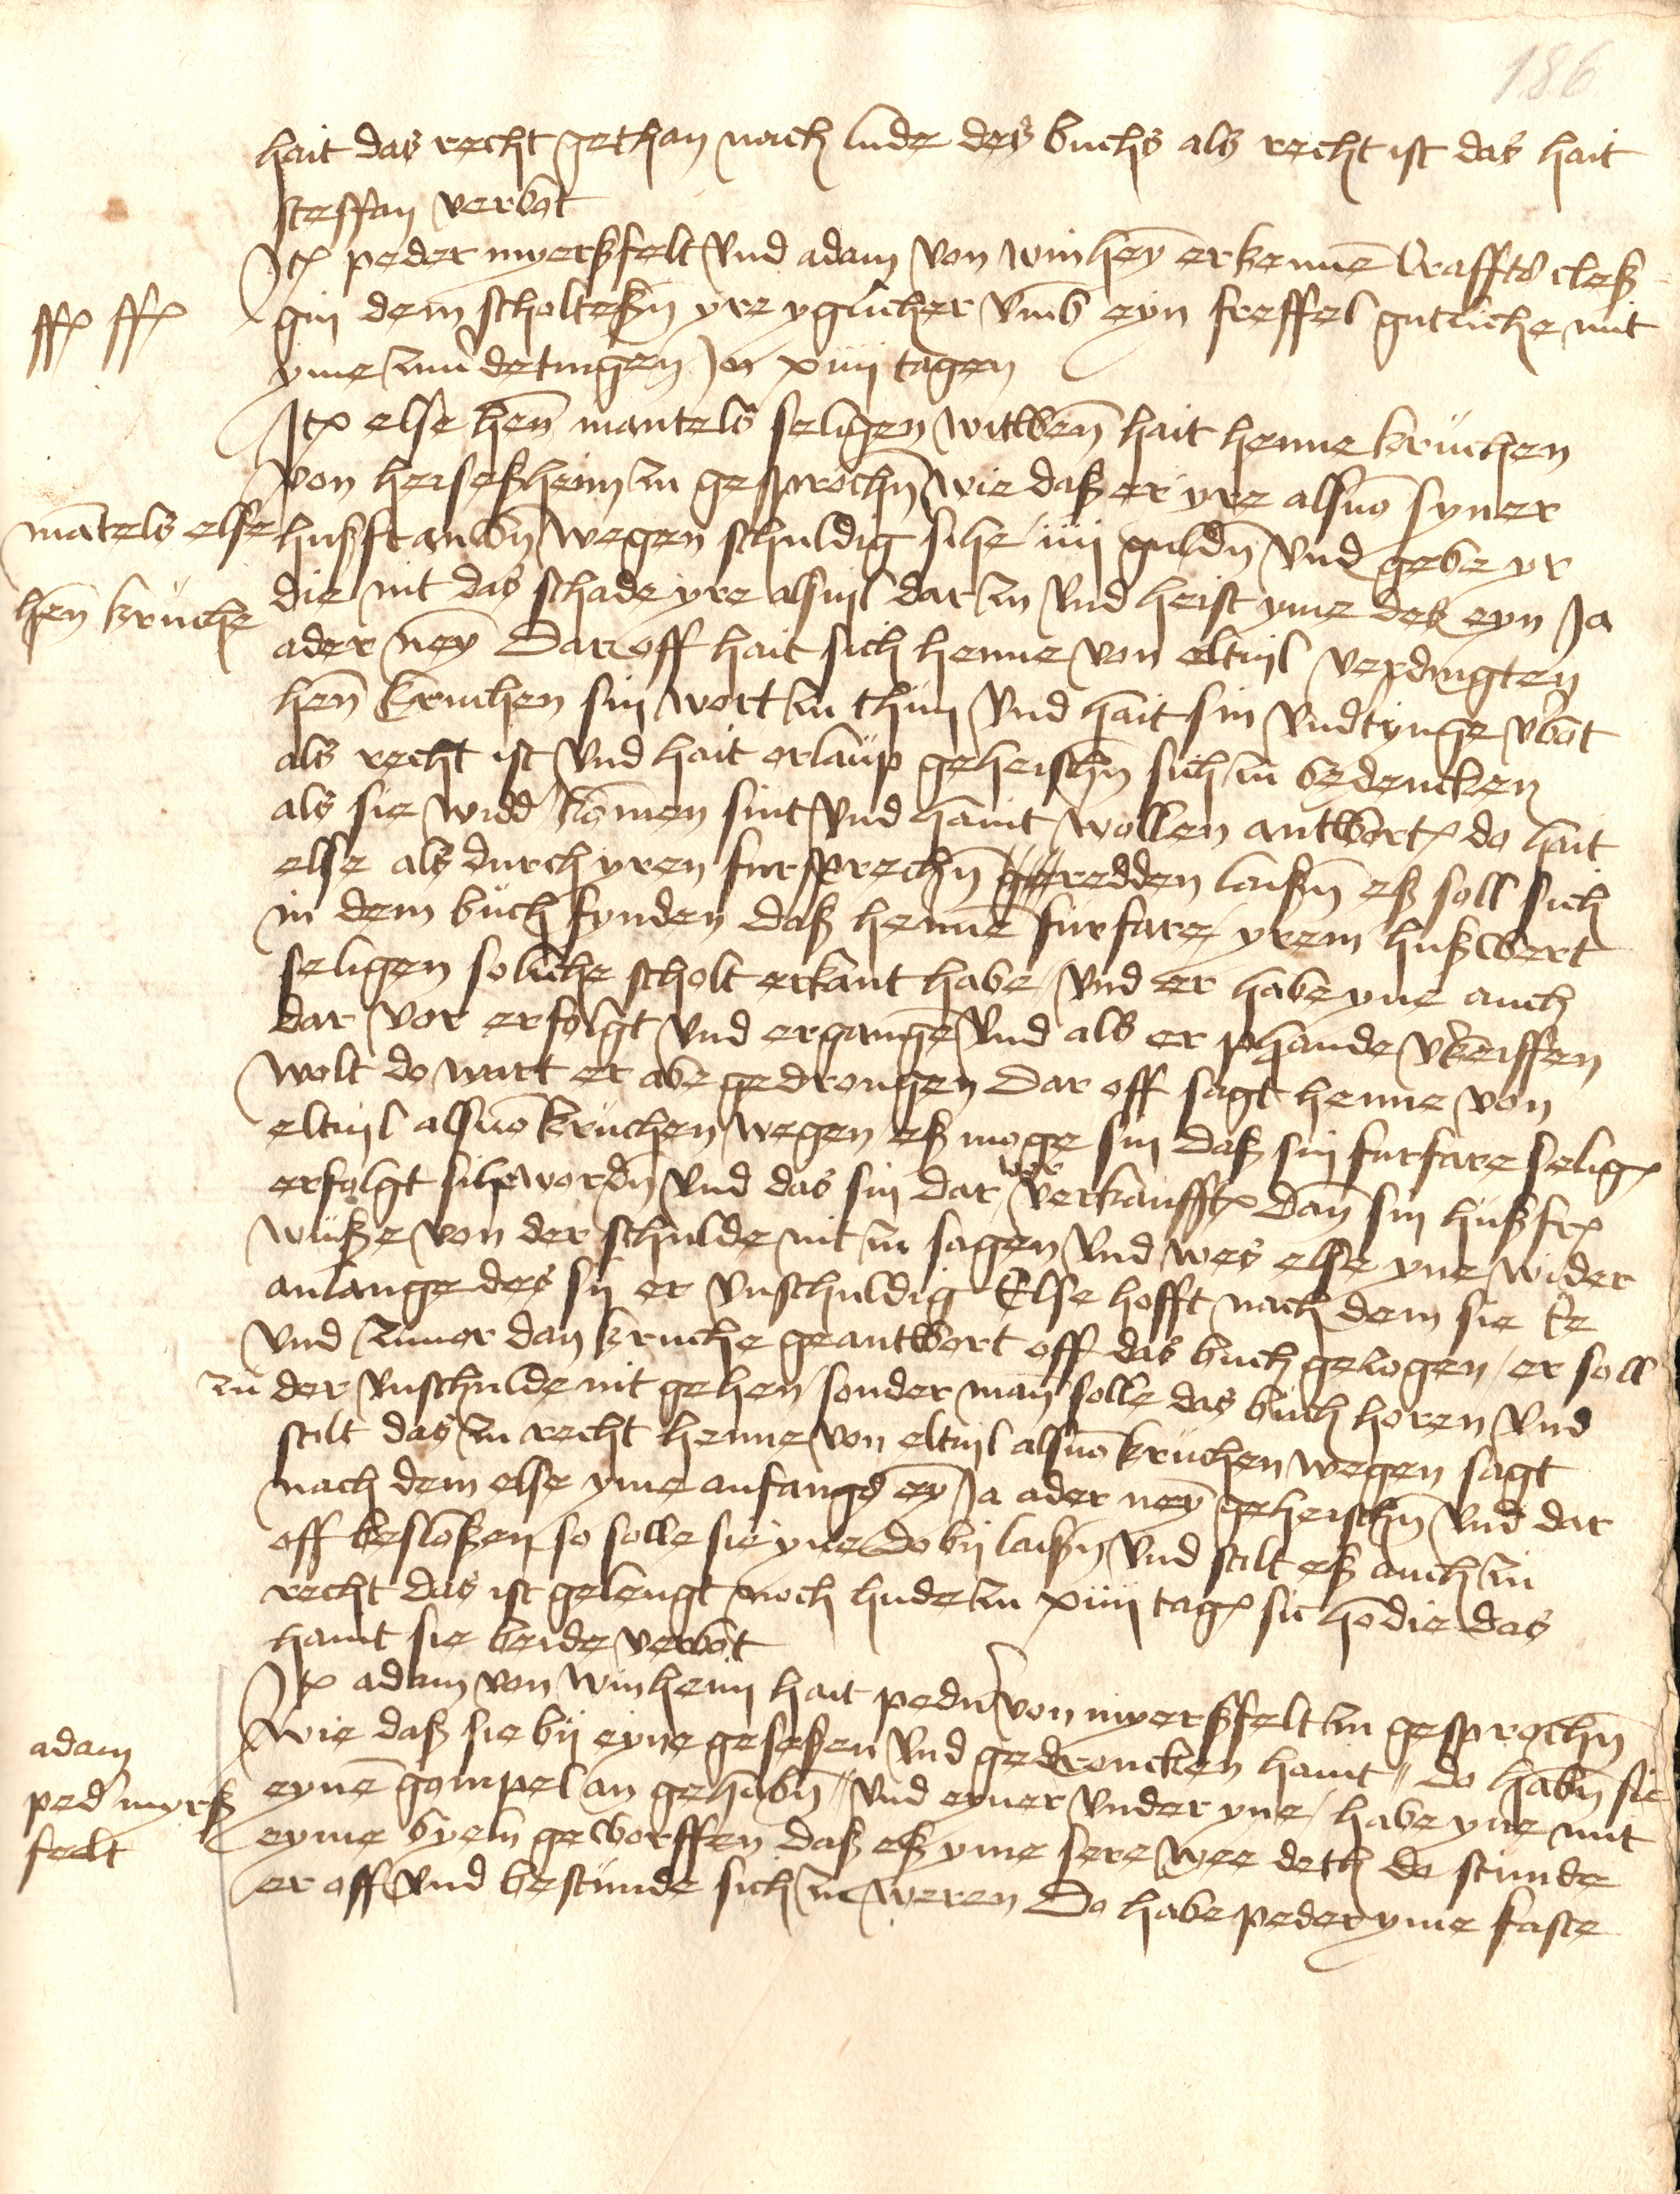 186
hait das recht gethan nach lude des buchs als recht ist das hait
steffan verbot
Itẽ peder myerßfelt vnd adam von winheȳ erkennē Craffts cleß
gin dem scholteßn̄ yre yglicher vmb eyn freffel gutliche mit
yme zun detingen In xiiij tagen
ffẽ ffẽ
Itẽ else hen̄ mantels seligen witwen̄ hait henne kruchen
von heseßheim zu gesprochn̄ wie daß er yre alsuō syner
hußfrauwn̄ wegen schuldig sihe iiij guldn̄ vnd gebe yr
mātels else
die nit das schade yre alsuil dar zu vnd heist yme deß eyn Ja
hen̄ kruche
ader neȳ Dar off hait sich henne von eltuil verdingten
hen̄ kruchen sin wort zu thun vnd hait sin vndtynge v'bot
als recht ist vnd hait erlaup geheischn̄ sich zu bedencken
als sie widd' komen sint vnd haint wollen antwortẽ do hait
else als durch yren fursprechn̄ redden laißn̄ eß soll sich
in dem buch fynden daß henne furfare yrem hußwert
seligen soliche scholt erkant habe vnd er habe yne auch
dar vor erfolgt vnd ergangē vnd als er phande v'keiffen
wolt do wart er abe gedrongen Dar off sagt henne von
eltuil alsuō kruchen wegen eß moge sin daß sin furfare seligẽ
erfolgt sihe wordn̄ vnd das sin dar vor verkaufftẽ Dan̄ sin hußfrẽ
wuße von der schulde nit zu sagen vnd wes else yne wider
anlange des sij er vnschuldig Else hofft nach dem sie Ee
vnd zuuor dan kruche geantwort off das buch gezogen er soll
zu der vnschulde nit gehen sonder man̄ solle das buch horen vnd
stilt das zu recht henne von eltuil alsuō kruchen wegen sagt
nach dem else yme anfangs eȳ Ja ader neȳ geheischn̄ vnd dar
off besloßen so solle sie yne do bij laißn̄ vnd stilt eß auch zu
recht das ist gelengt noch hude zu xiiij tagẽ sic hodie das
haint sie beide verbot
Itẽ adam von winheim hait pedn̄ von myerßfelt zu gesprochn̄
wie daß sie bij eyne geseßen vnd gedroncken haint do habn̄ sie
adam
eynē gompel an gehabn̄ vnd eyner vnder yne habe yne mit
ped' myrß
eyme byein geworffen daß eß yme sere wee deth do stunde
felt
er off vnd bestunde sich zu weren Do habe peder yme faste